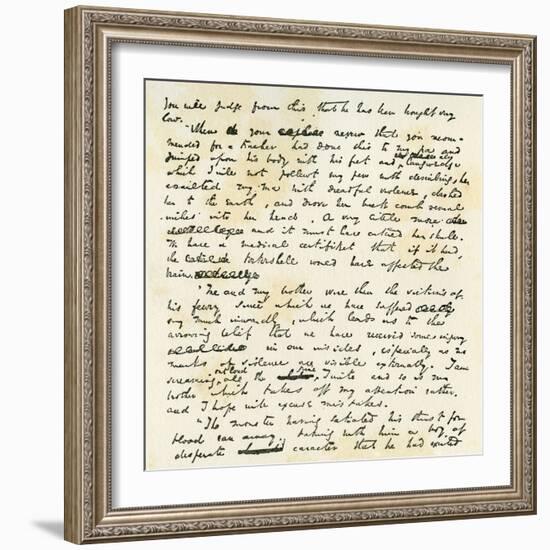 You will judge from this that he has been brought very
low.
"When your nevew that you recom-
mended for a teacher had done this to my pa and
jumped upon his body with his feet and langwedge
which I will not pollewt my pen with describing, he
assaulted my ma with dreadful violence, dashed
her to the earth, and drove her back comb several
inches into her head. A very little more
and it must have entered her skull.
We have a medical certifiket that if it had,
the tortershell would have affected the
brain.
"Me and my brother were then the victims of
his feury since which we have suffered
very much inwardly, which leads us to the
arrowing belief that we have received some injury
in our insides, especially as no
marks of violence are visible externally. I am
screaming out loud all the time I write and so is my
brother which takes off my attention rather,
and I hope will excuse mistakes.
"The monster having satiated his thirst for
blood ran away, taking with him a boy of
desperate caracter that he had excited